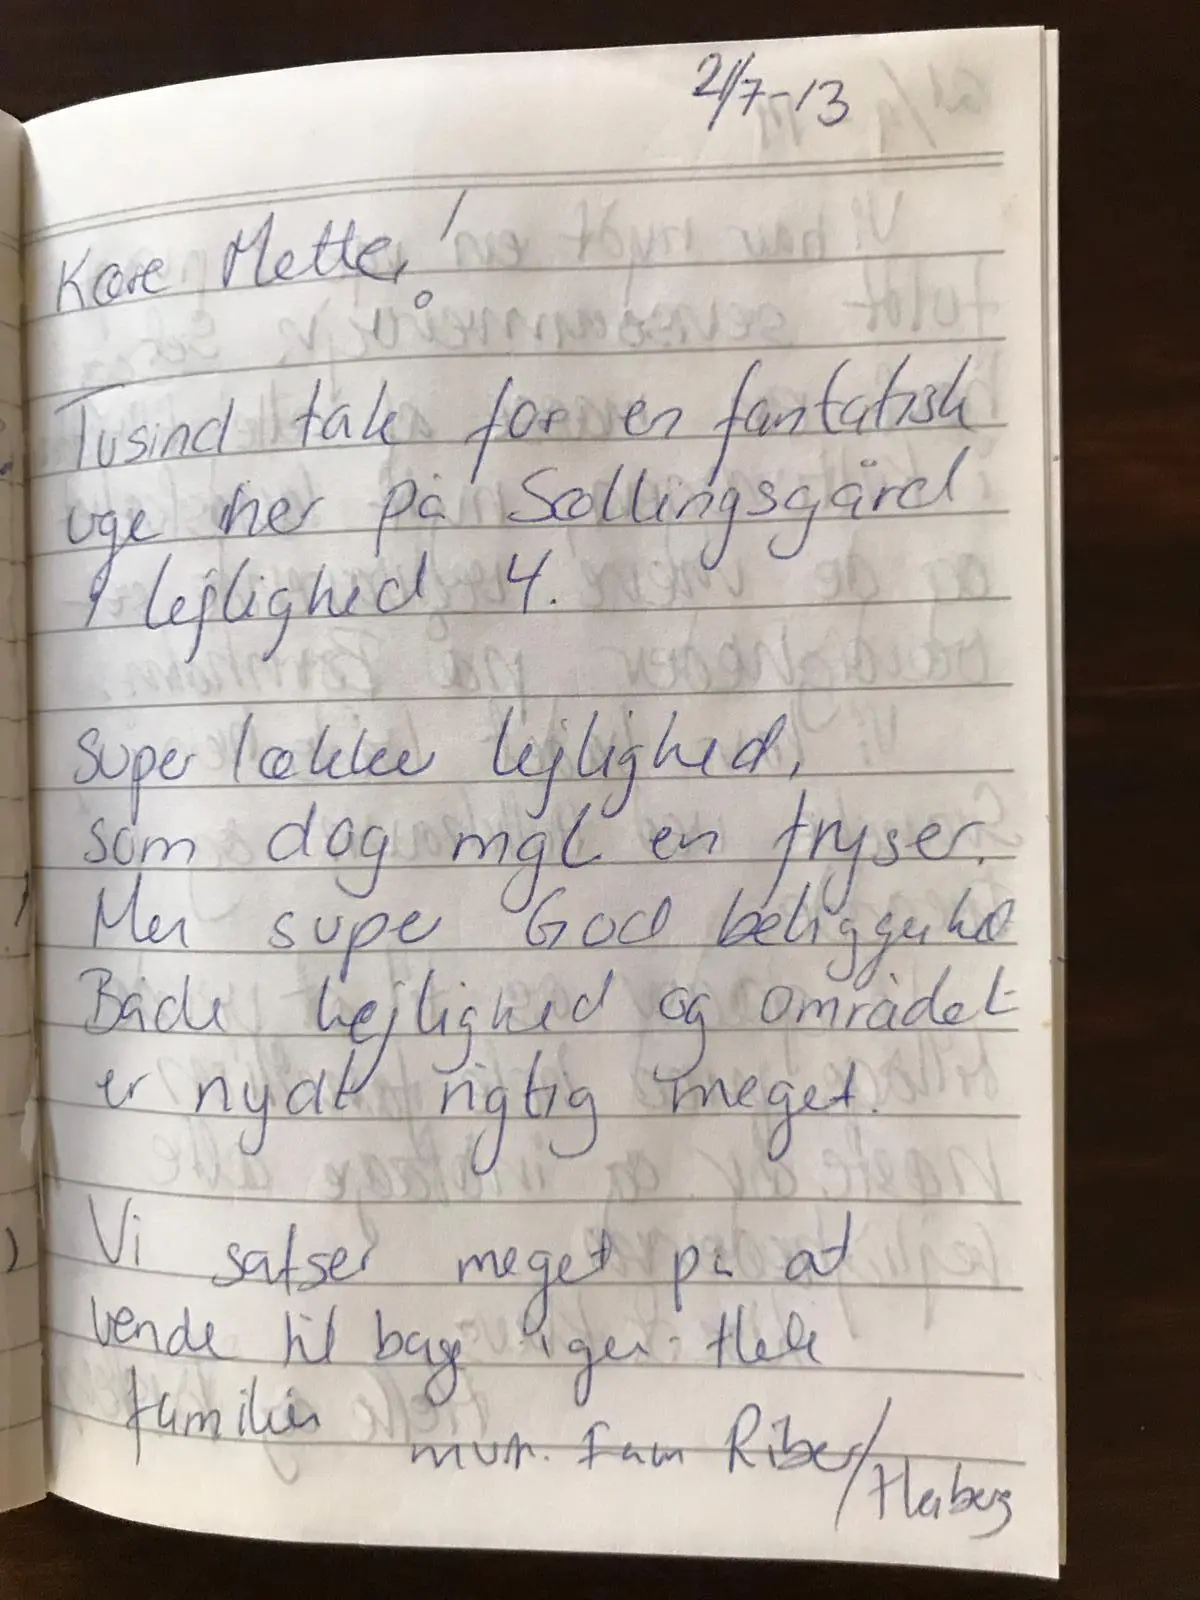 21/7-13
Kære Mette!
Tusind tak for en fantatisk
uge her på Sællingsgård
i lejlighed 4.
Super lækker lejlighed,
som dog mgl en fryser.
Men super God beliggenhed
Både lejlighed og området
er nydt rigtig meget.
Vi satser meget på at
vende til bage igen. Hele
familien
mvh. Fam Riber/
Heiberg